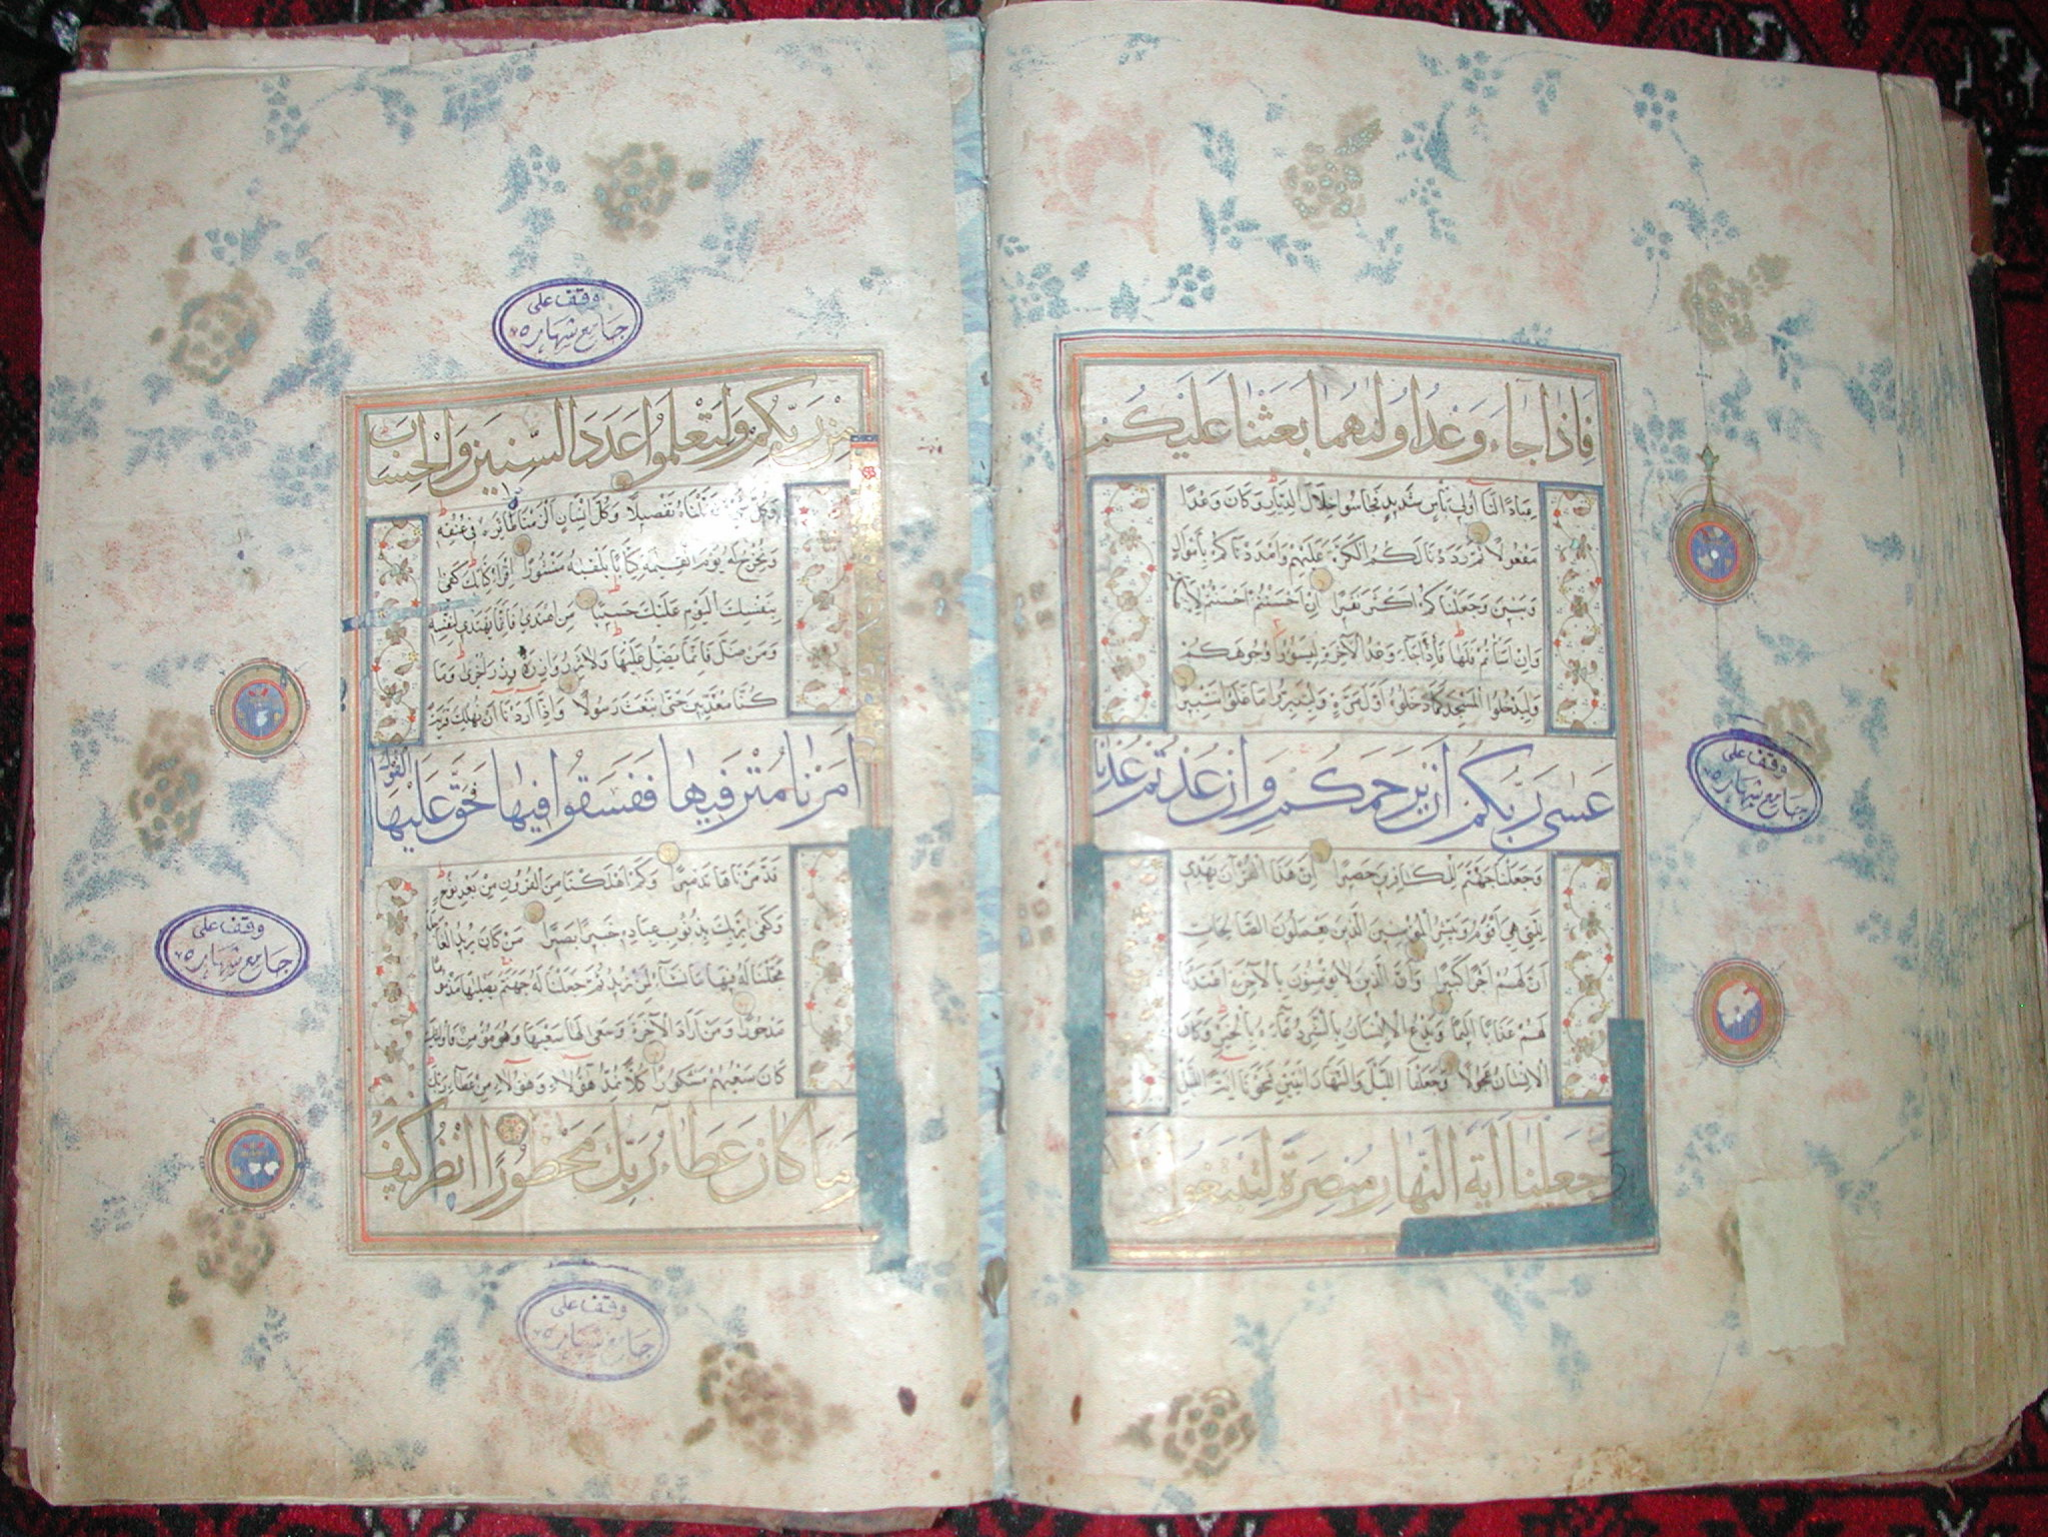 فَاِذَا جَاءَ وَعْدُ اُولٰهُمَا بَعَثْنَا عَلَيْكُمْ
عِبَادًا لَنَا اُولِي بَأْسٍ شَدِيدٍ فَجَاسُوا خِلَالَ الدِّيَارِ وَكَانَ وَعْدًا
مَفْعُولًا ثُمَّ رَدَدْنَا لَكُمُ الْكَرَّةَ عَلَيْهِمْ وَاَمْدَدْنَاكُمْ بِاَمْوَالٍ
وَبَنِينَ وَجَعَلْنَاكُمْ اَكْثَرَ نَفِيرًا اِنْ اَحْسَنْتُمْ اَحْسَنْتُمْ
وَاِنْ اَسَأْتُمْ فَلَهَا فَاِذَا جَاءَ وَعْدُ الْآخِرَةِ لِيَسُوؤُا وُجُوهَكُمْ
وَلِيَدْخُلُوا الْمَسْجِدَ كَمَا دَخَلُوهُ اَوَّلَ مَرَّةٍ وَلِيُتَبِّرُوا مَا عَلَوْا تَتْبِيرًا
عَسٰى رَبُّكُمْ اَنْ يَرْحَمَكُمْ وَاِنْ عُدْتُمْ عُدْنَا
وَجَعَلْنَا جَهَنَّمَ لِلْكَافِرِينَ حَصِيرًا اِنَّ هٰذَا الْقُرْآنَ يَهْدِي
لِلَّتِي هِيَ اَقْوَمُ وَيُبَشِّرُ الْمُؤْمِنِينَ الَّذِينَ يَعْمَلُونَ الصَّالِحَاتِ
اَنَّ لَهُمْ اَجْرًا كَبِيرًا وَاَنَّ الَّذِينَ لَا يُؤْمِنُونَ بِالْآخِرَةِ اَعْتَدْنَا
لَهُمْ عَذَابًا اَلِيمًا وَيَدْعُ الْاِنْسَانُ بِالشَّرِّ دُعَاءَهُ بِالْخَيْرِ وَكَانَ
الْاِنْسَانُ عَجُولًا وَجَعَلْنَا اللَّيْلَ وَالنَّهَارَ اٰيَتَيْنِ فَمَحَوْنَا اٰيَةَ اللَّيْلِ
وَجَعَلْنَا اٰيَةَ النَّهَارِ مُبْصِرَةً لِتَبْتَغُوا
وقف على
جامع شهاره
مِنْ رَبِّكُمْ وَلِتَعْلَمُوا عَدَدَ السِّنِينَ وَالْحِسَابَ
وَكُلَّ شَيْءٍ فَصَّلْنَاهُ تَفْصِيلًا وَكُلَّ اِنْسَانٍ اَلْزَمْنَاهُ طَائِرَهُ فِي عُنُقِهِ
وَنُخْرِجُ لَهُ يَوْمَ الْقِيٰمَةِ كِتَابًا يَلْقٰيهُ مَنْشُورًا اِقْرَأْ كِتَابَكَ كَفٰى
بِنَفْسِكَ الْيَوْمَ عَلَيْكَ حَسِيبًا مَنِ اهْتَدٰى فَاِنَّمَا يَهْتَدِي لِنَفْسِهِ
وَمَنْ ضَلَّ فَاِنَّمَا يَضِلُّ عَلَيْهَا وَلَا تَزِرُ وَازِرَةٌ وِزْرَ اُخْرٰى وَمَا
كُنَّا مُعَذِّبِينَ حَتّٰى نَبْعَثَ رَسُولًا وَاِذَا اَرَدْنَا اَنْ نُهْلِكَ قَرْيَةً
اَمَرْنَا مُتْرَفِيهَا فَفَسَقُوا فِيهَا فَحَقَّ عَلَيْهَا الْقَوْلُ
فَدَمَّرْنَاهَا تَدْمِيرًا وَكَمْ اَهْلَكْنَا مِنَ الْقُرُونِ مِنْ بَعْدِ نُوحٍ
وَكَفٰى بِرَبِّكَ بِذُنُوبِ عِبَادِهِ خَبِيرًا بَصِيرًا مَنْ كَانَ يُرِيدُ الْعَاجِلَةَ
عَجَّلْنَا لَهُ فِيهَا مَا نَشَاءُ لِمَنْ نُرِيدُ ثُمَّ جَعَلْنَا لَهُ جَهَنَّمَ يَصْلٰيهَا مَذْمُومًا
مَدْحُورًا وَمَنْ اَرَادَ الْآخِرَةَ وَسَعٰى لَهَا سَعْيَهَا وَهُوَ مُؤْمِنٌ فَاُولٰئِكَ
كَانَ سَعْيُهُمْ مَشْكُورًا كُلًّا نُمِدُّ هٰؤُلَاءِ وَهٰؤُلَاءِ مِنْ عَطَاءِ رَبِّكَ
وَمَا كَانَ عَطَاءُ رَبِّكَ مَحْظُورًا اُنْظُرْ كَيْفَ
وقف على
جامع شهاره
وقف على
جامع شهاره
وقف على
جامع شهاره